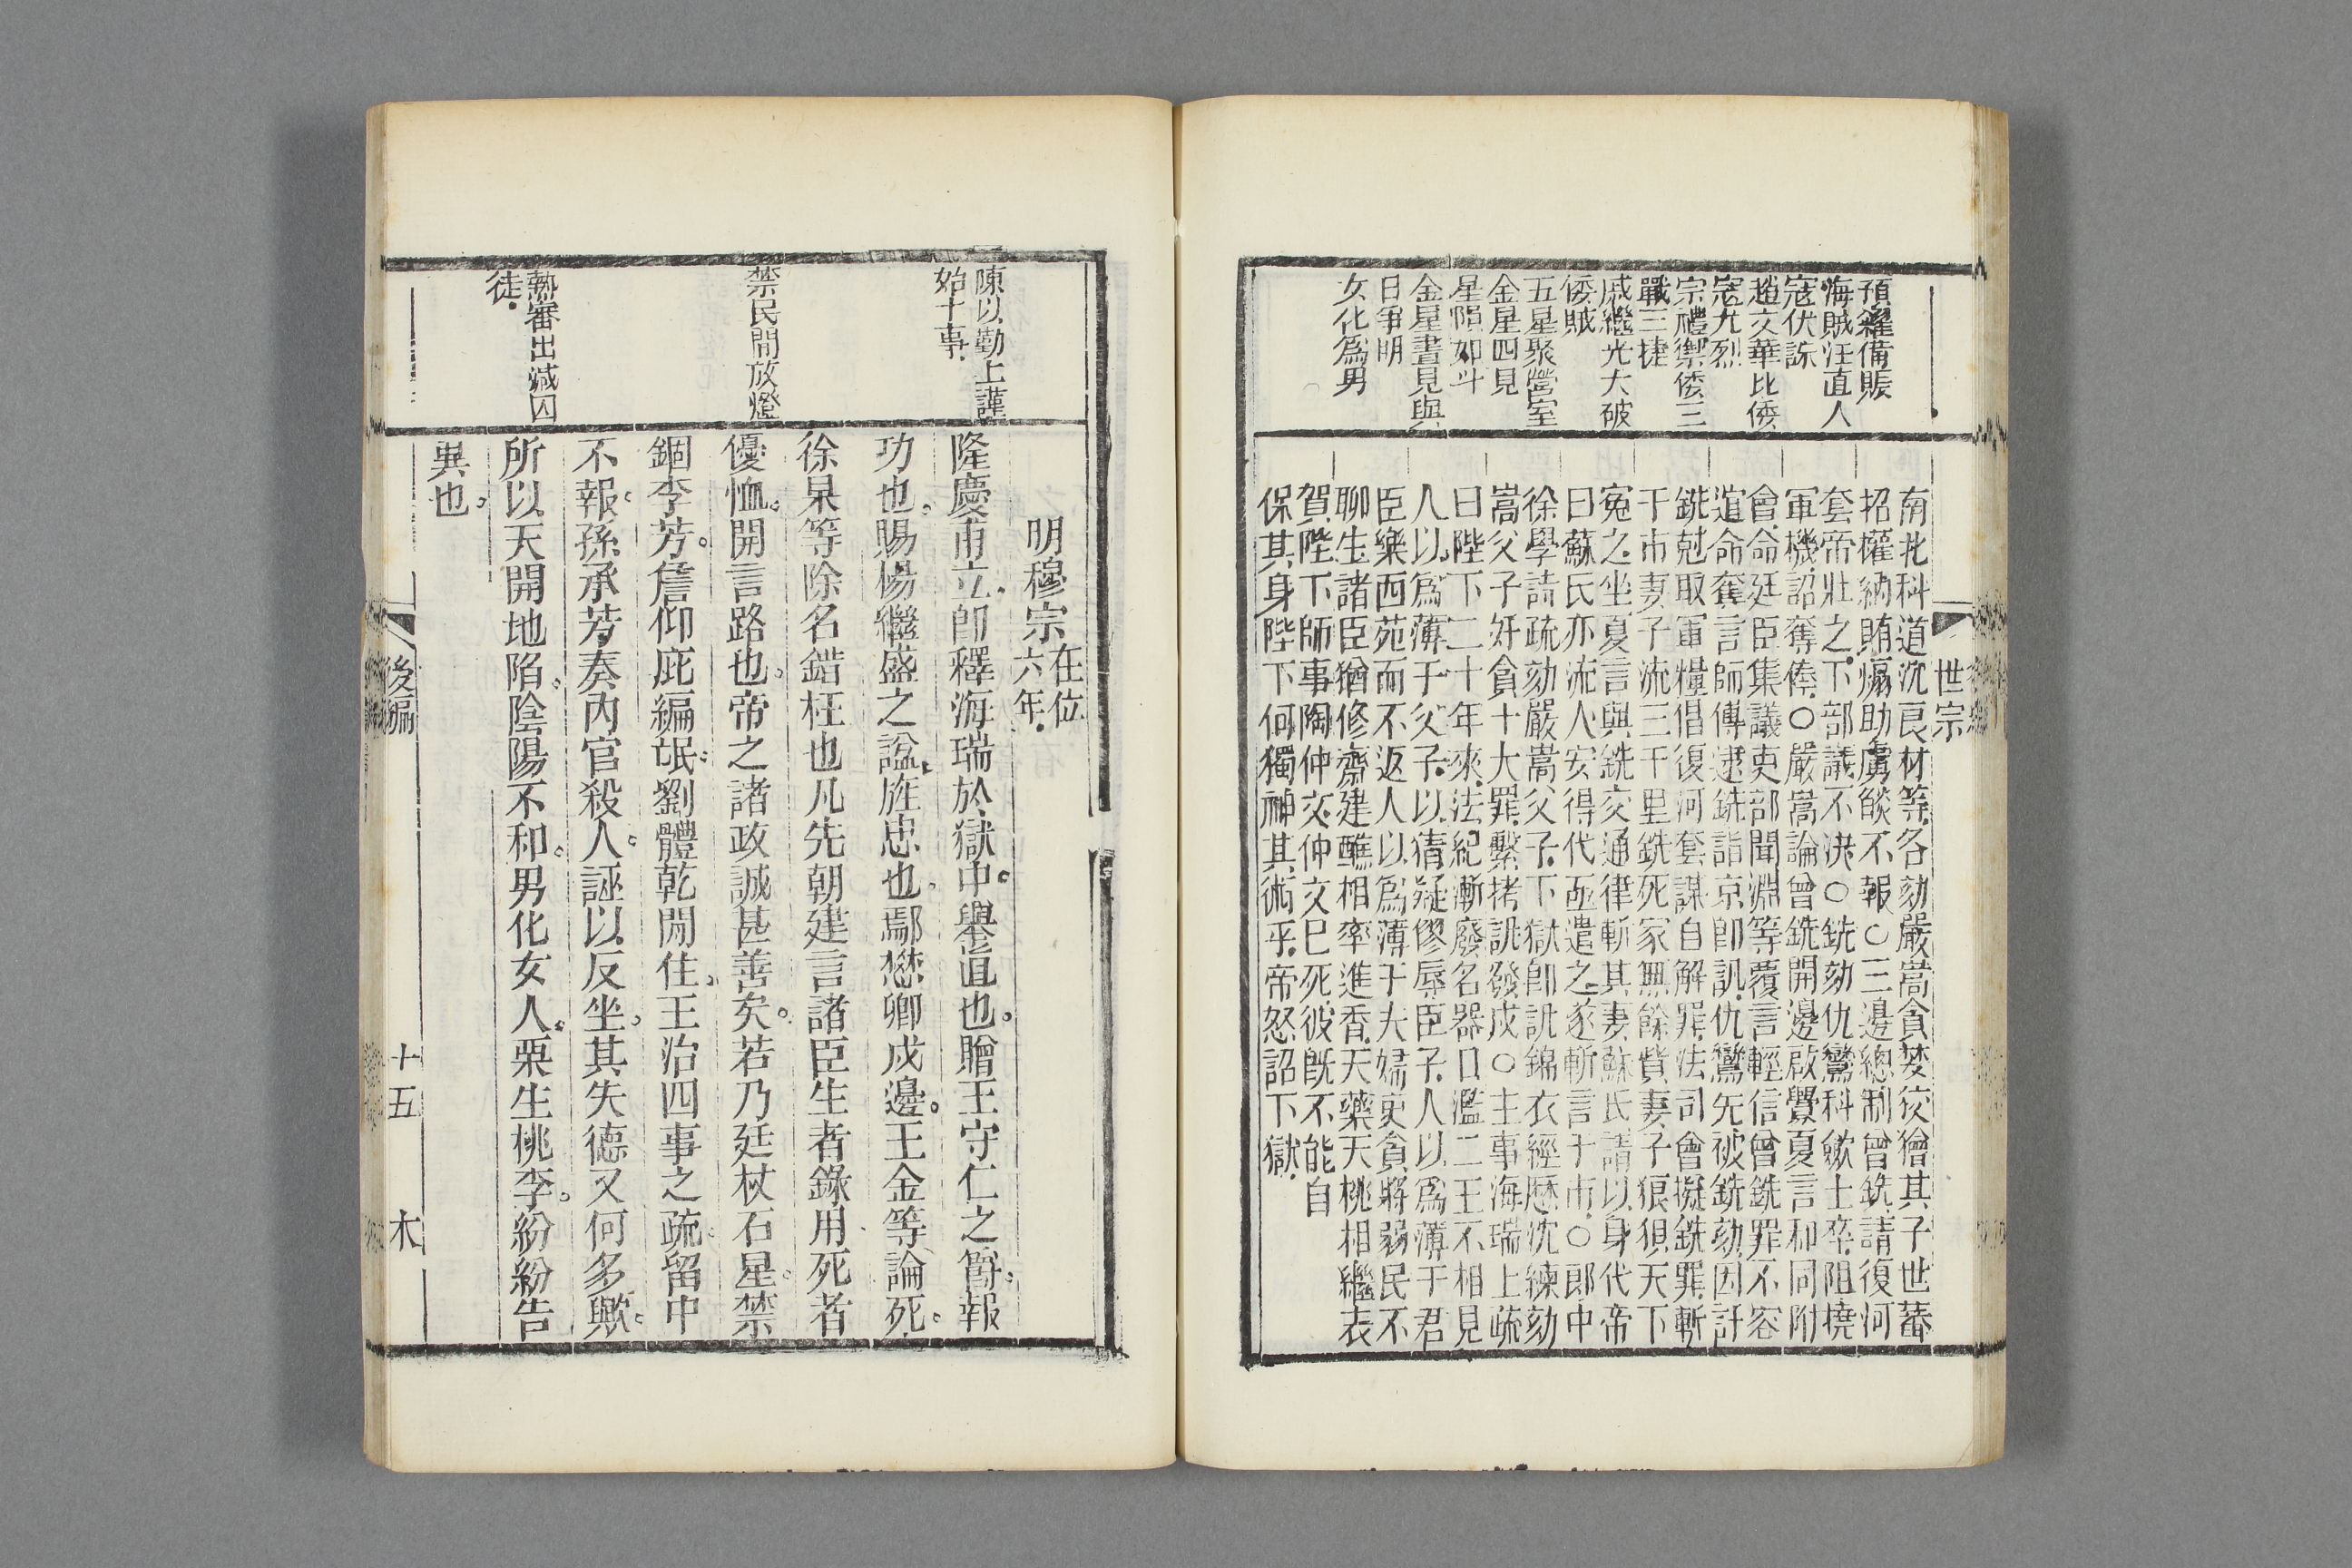 世宗
預糴備賑
海賊汪直人
寇伏誅
趙文華比倭
寇尤烈
宗禮禦倭三
戰三捷
戚繼光大破
倭賊
五星聚營室
金星四見
星隕如斗
金星晝見與
日爭明
女化爲男
南北科道沈良材等各劾嚴嵩貪婪狡獪其子世蕃
招權納賄煽助虜燄不報○三邊總制曾銑請復河
套帝壯之下部議不決○銑劾仇鸞科歛士卒阻撓
軍機詔奪俸○嚴嵩論曾銑開邊啟釁夏言和同附
會命廷臣集議吏部聞淵等覆言輕信曾銑罪不容
逭命奪言師傅逮銑詣京卽訊仇鸞先被銑劾因訐
銑尅取軍糧倡復河套謀自解罪法司會擬銑罪斬
于市妻子流三千里銑死家無餘貲妻子狼狽天下
冤之坐夏言與銑交通律斬其妻蘇氏請以身代帝
曰蘇氏亦流人安得代亟遣之遂斬言于市○郎中
徐學詩疏劾嚴嵩父子下獄卽訊錦衣經歷沈練劾
嵩父子奸貪十大罪繫拷訊發戍○主事海瑞上疏
曰陛下二十年來法紀漸廢名器日濫二王不相見
人以爲薄于父子以猜疑僇辱臣子人以爲薄于君
臣樂西苑而不返人以爲薄于夫婦吏貪將弱民不
聊生諸臣猶修齋建醮相率進香天藥天桃相繼表
賀陛下師事陶仲文仲文已死彼旣不能自
保其身陛下何獨神其術乎帝怒詔下獄
陳以勤上謹
始十事
禁民間放燈
熱審出減囚
徒
明穆宗在位
六年
隆慶甫立卽釋海瑞於獄中舉直也贈王守仁之爵報
功也賜楊繼盛之諡旌忠也鄢懋卿戍邊王金等論死
徐杲等除名錯枉也凡先朝建言諸臣生者錄用死者
優恤開言路也帝之諸政誠甚善矣若乃廷杖石星禁
錮李芳詹仰庇編氓劉體乾閒住王治四事之疏留中
不報孫承芳奏內官殺人誣以反坐其失德又何多歟
所以天開地陷陰陽不和男化女人栗生桃李紛紛告
異也
後編
十五
木